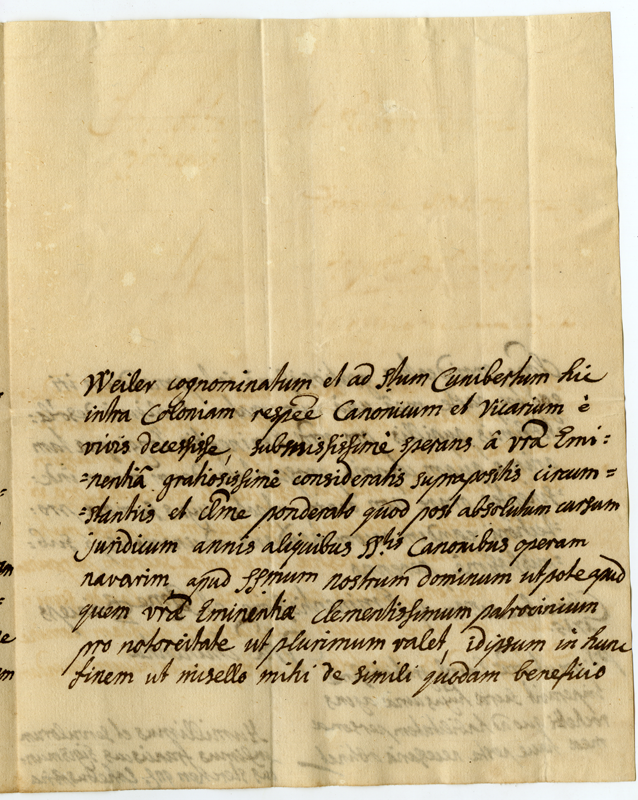 Weiler cognominatum et ad Stum Cunibertum hic
intra Coloniam respeē Canonicum et Vicarium è
vivis decessisse, submississimè sperans â vrâ Emi=
=nentiâ gratiosissimè consideratis suprapositis circum=
=stantiis et clme ponderato quod post absolutum cursum
juridicum annis aliquibus SStis Canonibus operam
navarim apud SSmum nostrum dominum utpote apud
quem vrâ Eminentia clementissimum patrocinium
pro notoreitate ut plurimum valet, idipsum in hunc
finem ut misello mihi de simili quodam beneficio